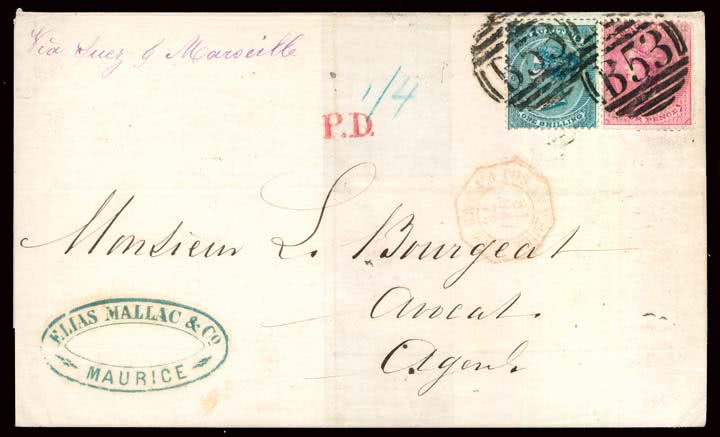 Via Suez & Marseille
1/4
P.D.
ONE SHILLING
PENCE
B53
B53
Monsieur L. Bourgeat
Avocat
Agen
ELIAS MALLAC & Co
MAURICE